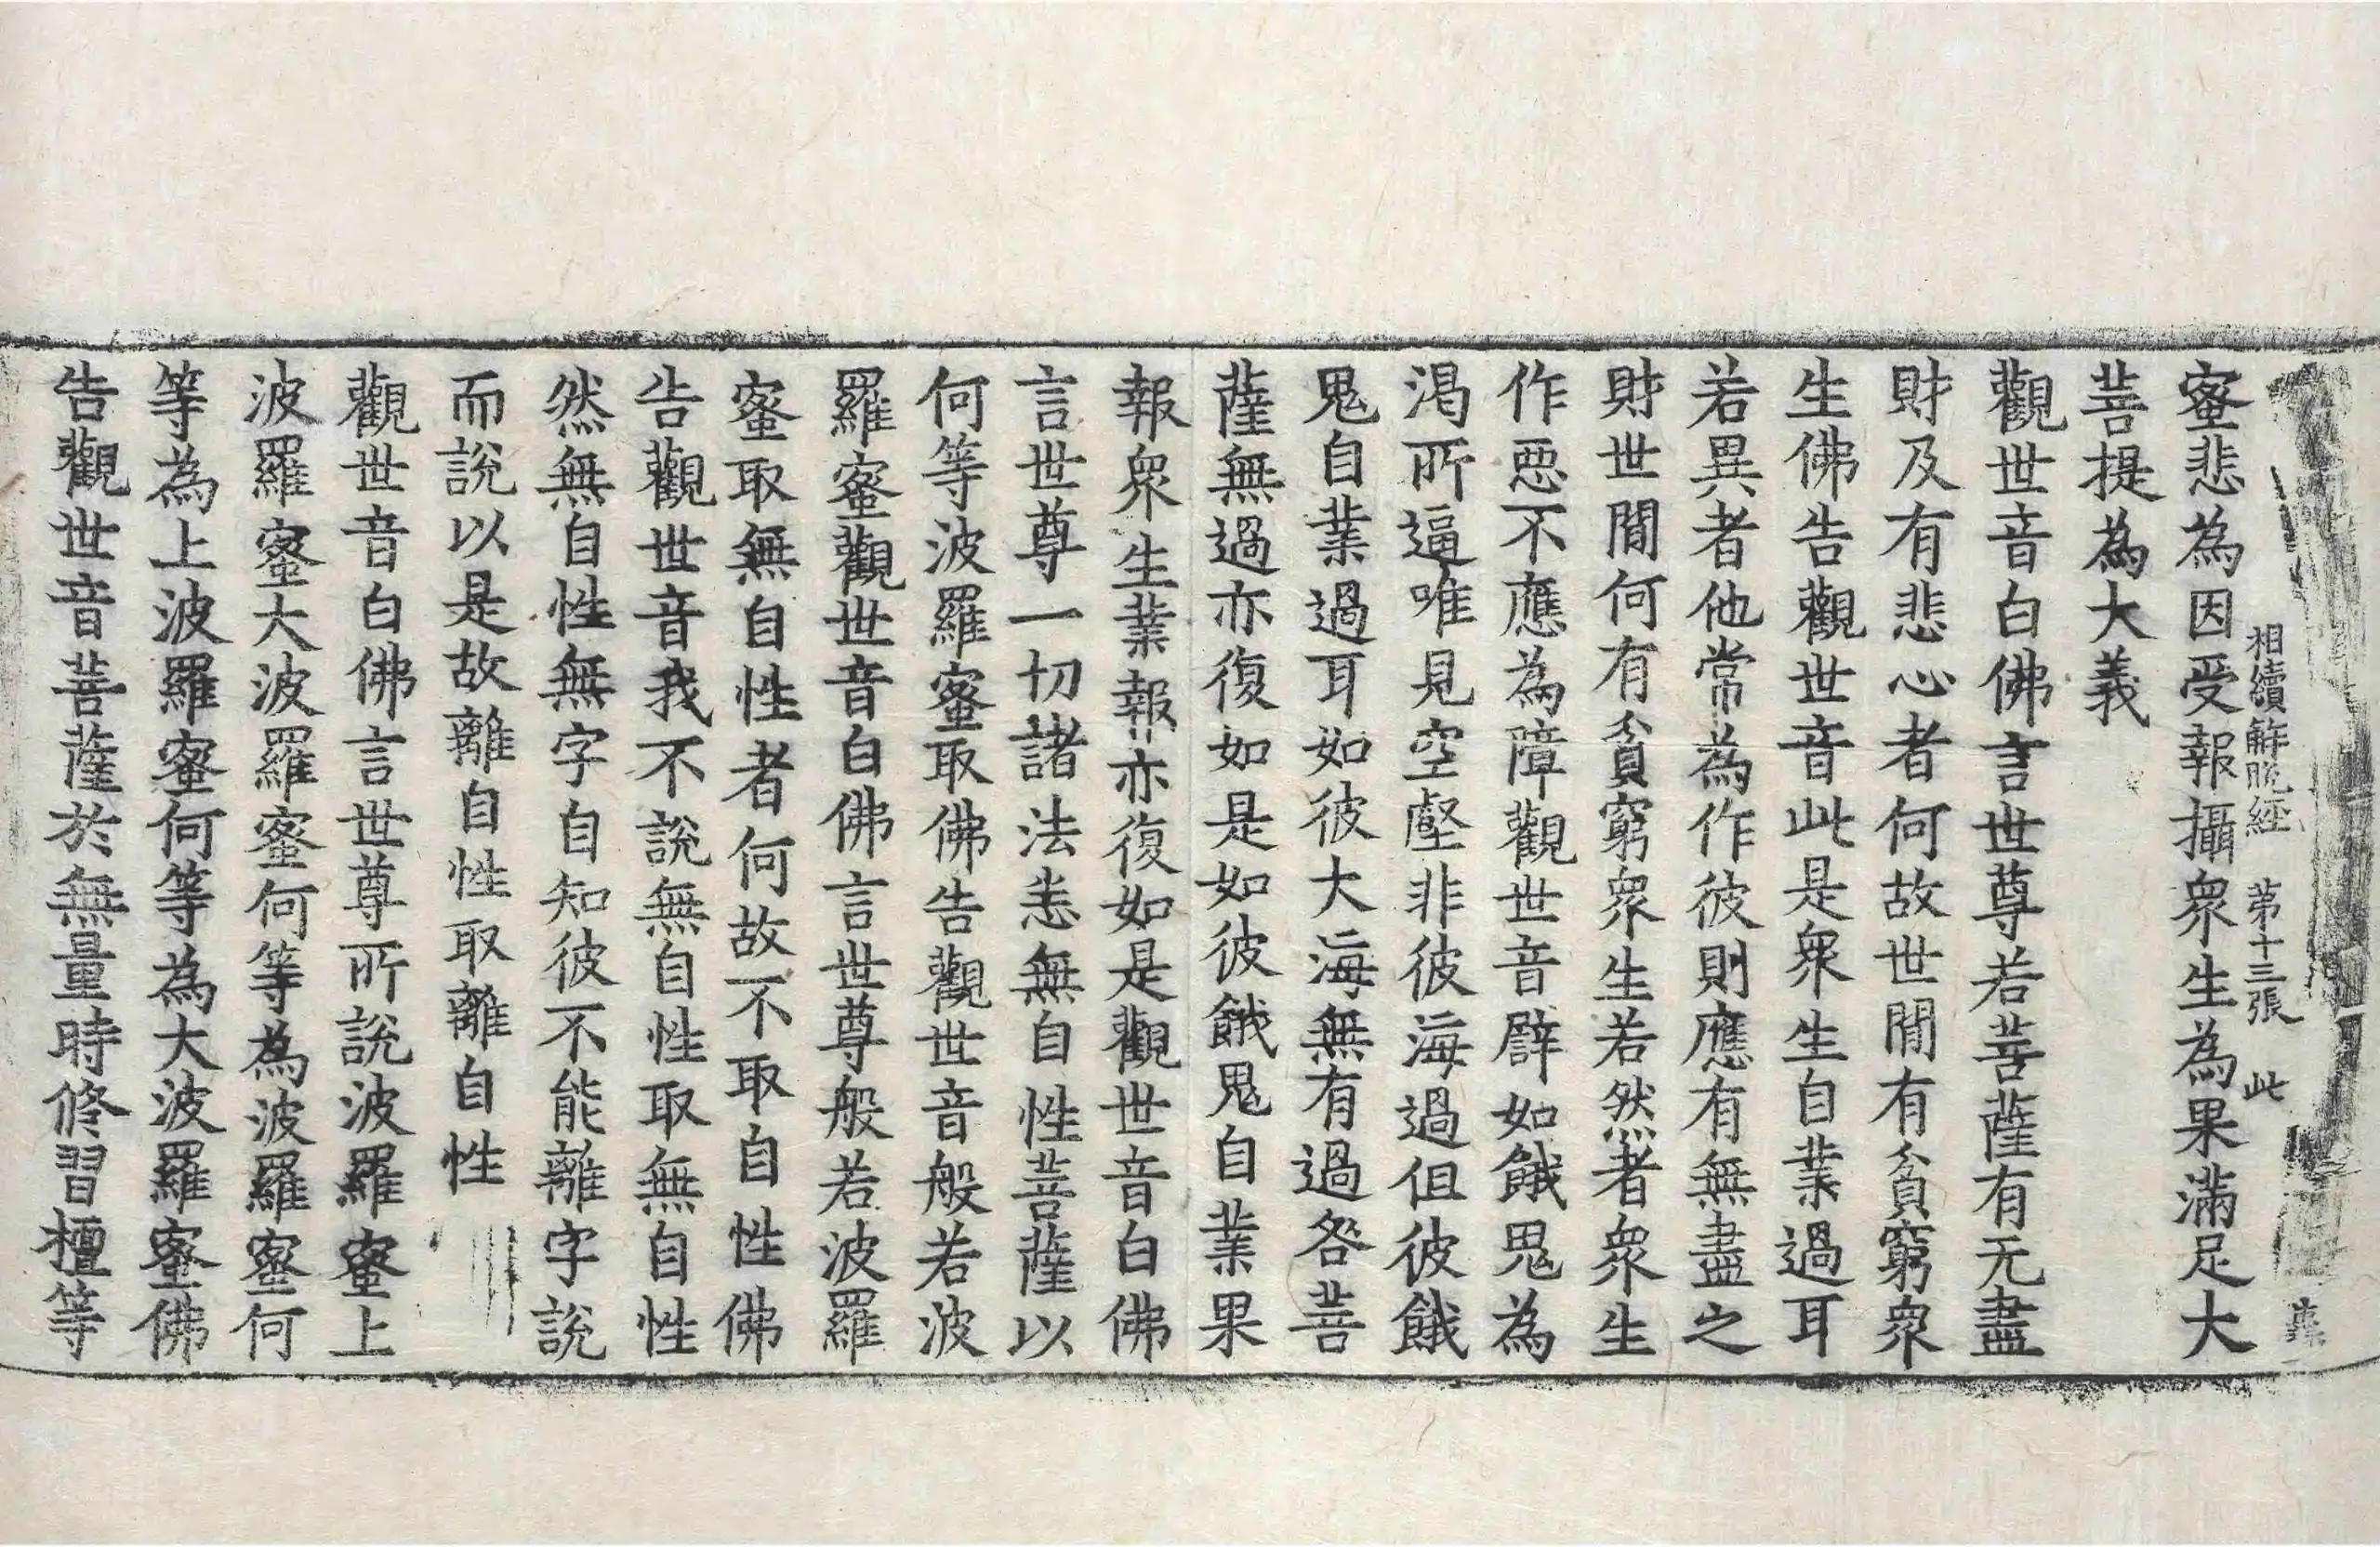 相續解脫經 第十三張 此
蜜悲為因受報攝衆生為果滿足大
菩提為大義
觀世音白佛言世尊若菩薩有无盡
財及有悲心者何故世閒有貧窮衆
生佛告觀世音此是衆生自業過耳
若異者他常為作彼則應有無盡之
財世閒何有貧窮衆生若然者衆生
作惡不應為障觀世音譬如餓鬼為
渴所逼唯見空壑非彼海過但彼餓
鬼自業過耳如彼大海無有過咎菩
薩無過亦復如是如彼餓鬼自業果
報衆生業報亦復如是觀世音白佛
言世尊一切諸法恙無自性菩薩以
何等波羅蜜取佛告觀世音般若波
羅蜜觀世音白佛言世尊般若波羅
蜜取無自性者何故不取自性佛
告觀世音我不說無自性取無自性
然無自性無字自知彼不能離字說
而說以是故離自性取離自性
觀世音白佛言世尊所說波羅蜜上
波羅蜜大波羅蜜何等為波羅蜜何
等為上波羅蜜何等為大波羅蜜佛
告觀世音菩薩於無量時修習檀等